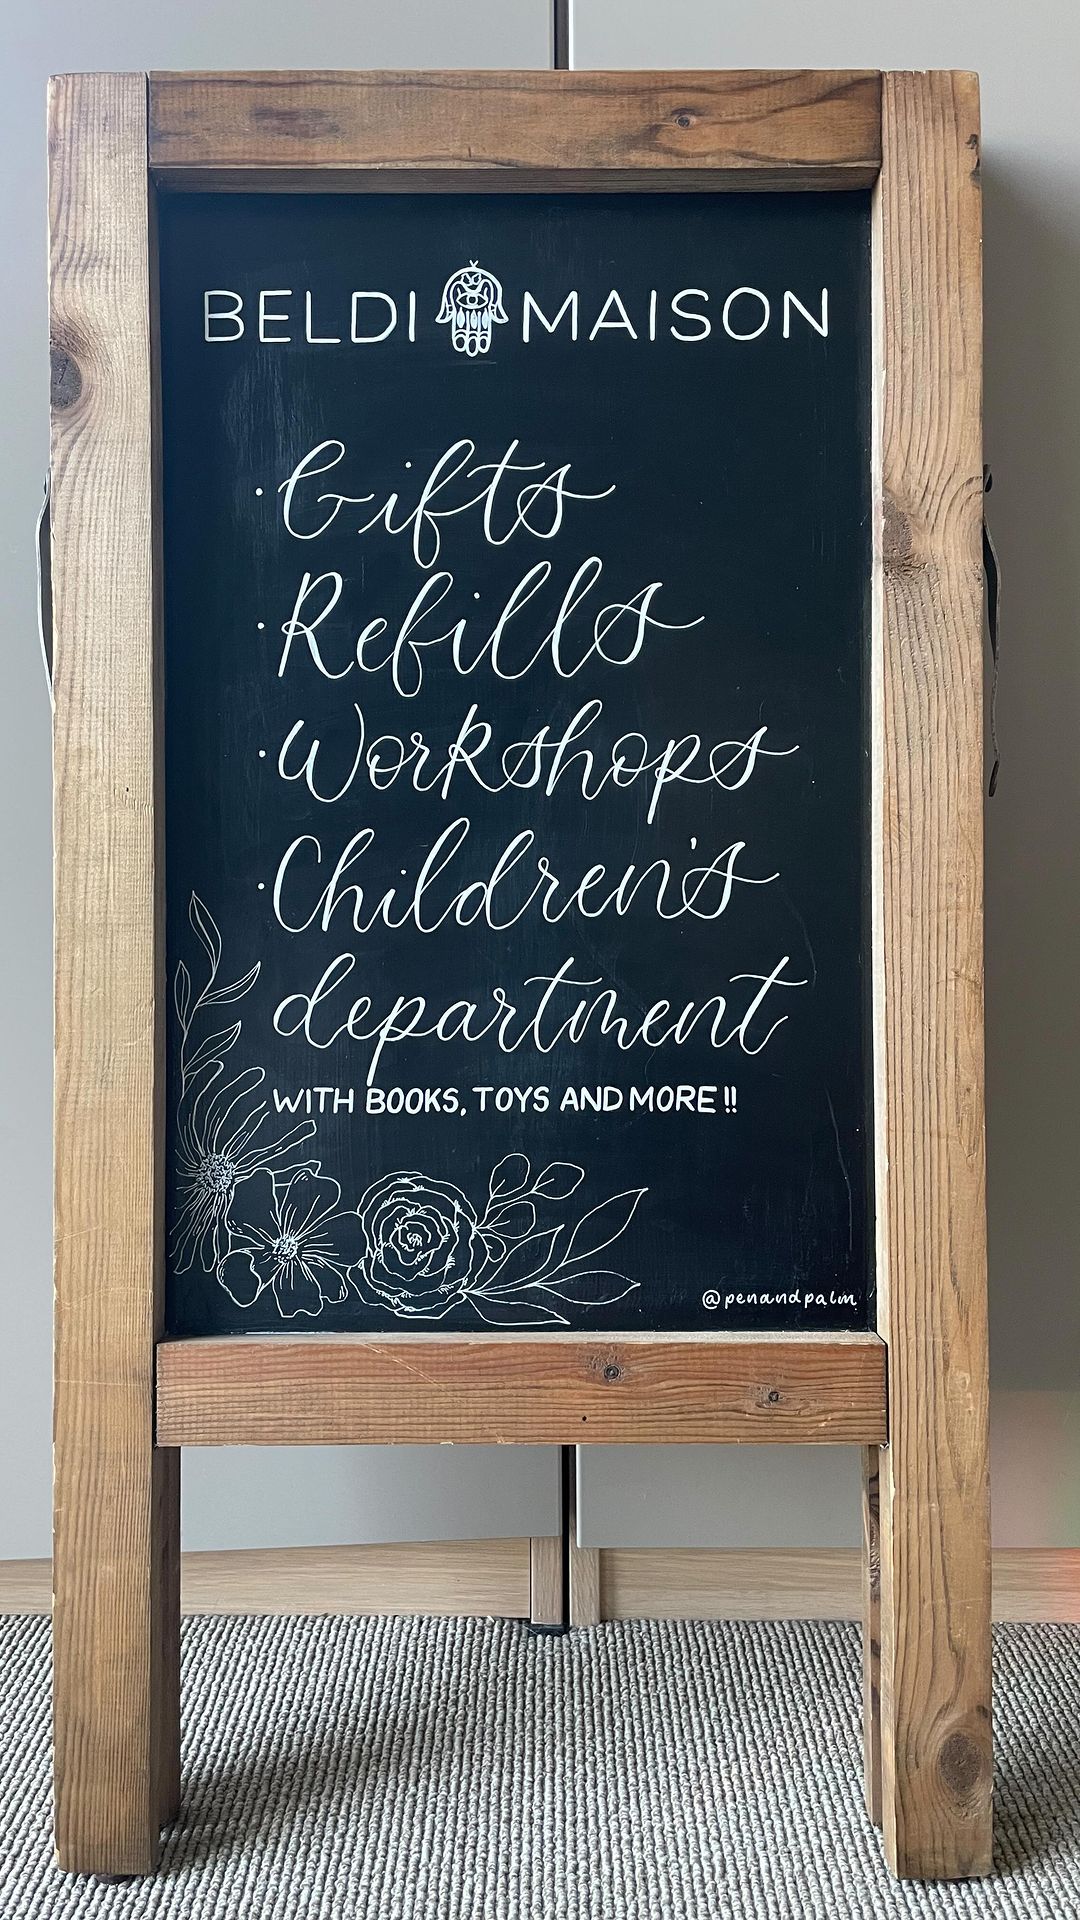 BELDI MAISON
· Gifts
· Refills
· Workshops
· Children's
department
WITH BOOKS, TOYS AND MORE!!
@penandpalm